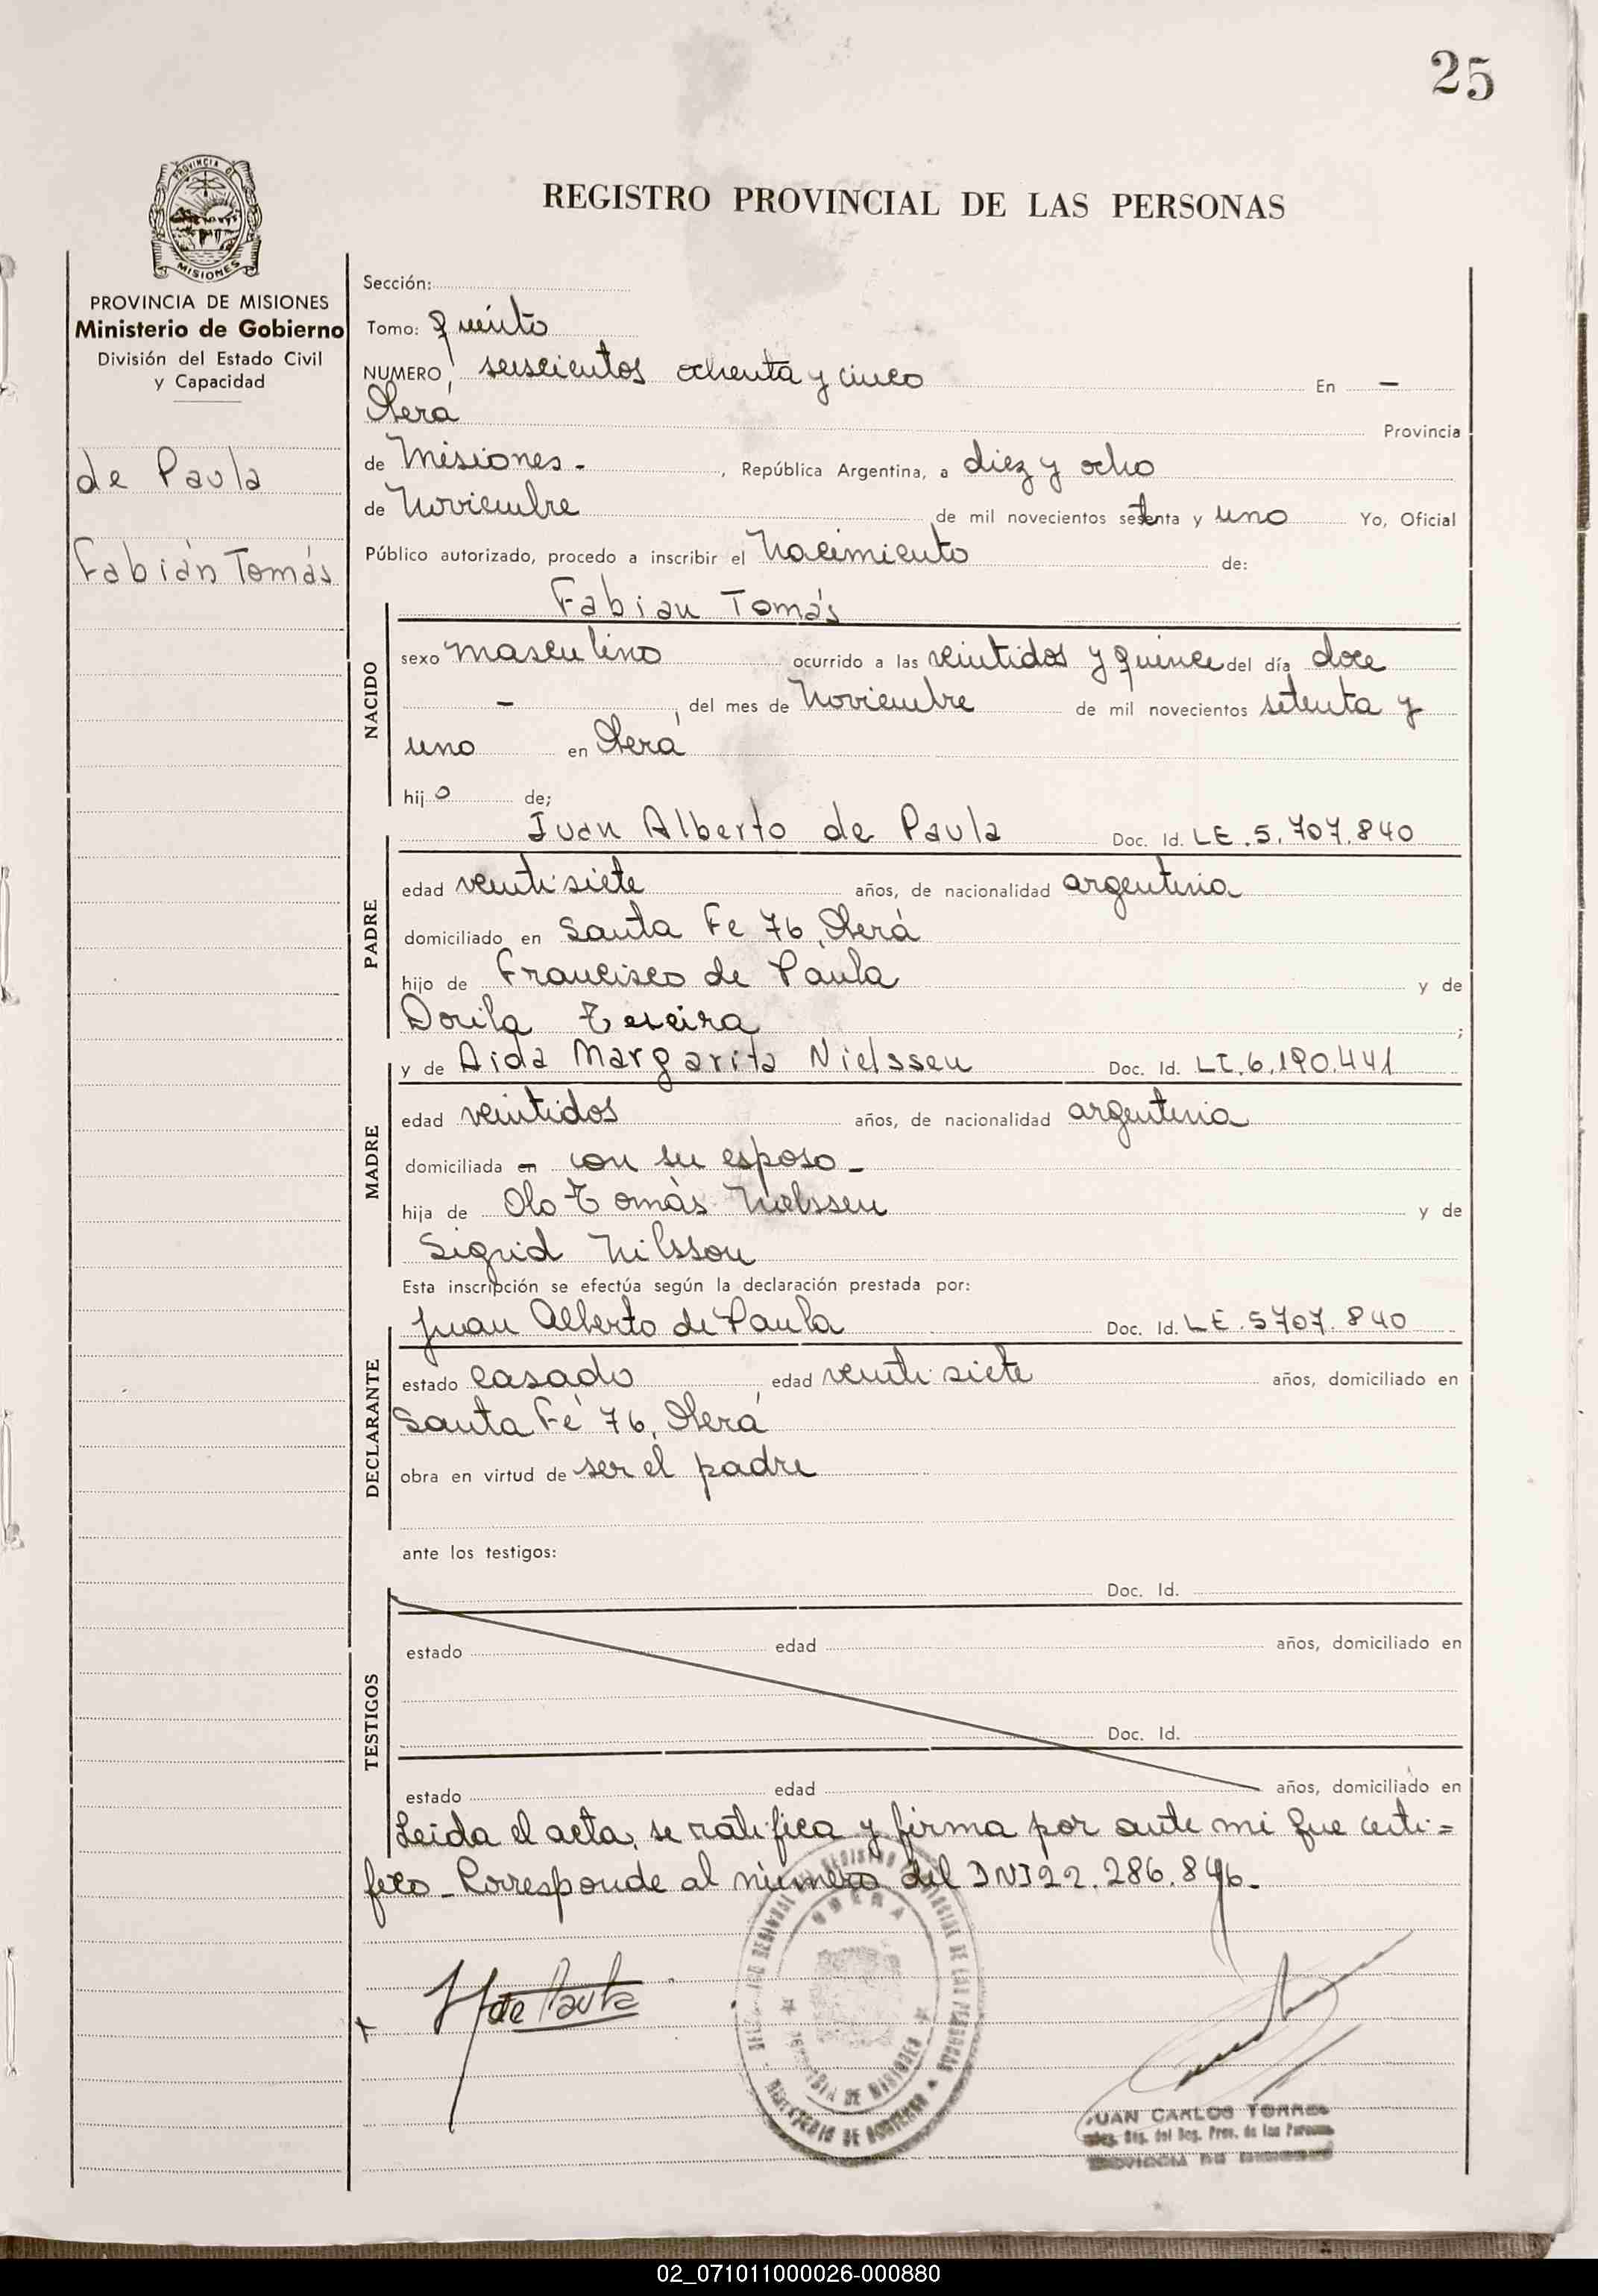 25
PROVINCIA DE
MISIONES
REGISTRO PROVINCIAL DE LAS PERSONAS
PROVINCIA DE MISIONES
Ministerio de Gobierno
División del Estado Civil
y Capacidad
de Paula
Fabián Tomás
Sección:
Tomo: quinto
NUMERO seiscientos ochenta y cinco En —
Oberá Provincia
de Misiones - , República Argentina, a diez y ocho
de Noviembre de mil novecientos setenta y uno Yo, Oficial
Público autorizado, procedo a inscribir el Nacimiento de:
Fabian Tomás
NACIDO
sexo masculino ocurrido a las veintidos y quince del día doce
— , del mes de Noviembre de mil novecientos setenta y
uno en Oberá
hijo de;
Juan Alberto de Paula Doc. Id. LE. 5.707.840
PADRE
edad veintisiete años, de nacionalidad argentina
domiciliado en Santa Fe 76, Oberá
hijo de Francisco de Paula y de
Dorila Texeira ;
y de Aida Margarita Nielssen Doc. Id. LC. 6.190.441
MADRE
edad veintidos años, de nacionalidad argentina
domiciliada en con su esposo -
hija de Olo Tomás Nielssen y de
Sigrid Nilsson
Esta inscripción se efectúa según la declaración prestada por:
Juan Alberto de Paula Doc. Id. LE. 5707.840
DECLARANTE
estado casado , edad veintisiete años, domiciliado en
Santa Fé 76, Oberá
obra en virtud de ser el padre
ante los testigos:
Doc. Id.
TESTIGOS
estado edad años, domiciliado en
Doc. Id.
estado edad años, domiciliado en
Leida el acta, se ratifica y firma por ante mi que certi=
fico - Corresponde al número del DNI 22.286.896.
de Paula
OBERA
PROVINCIA DE MISIONES
MINISTERIO DE GOBIERNO
JUAN CARLOS TORRES
del Reg. Prov. de las Personas
02_071011000026-000880